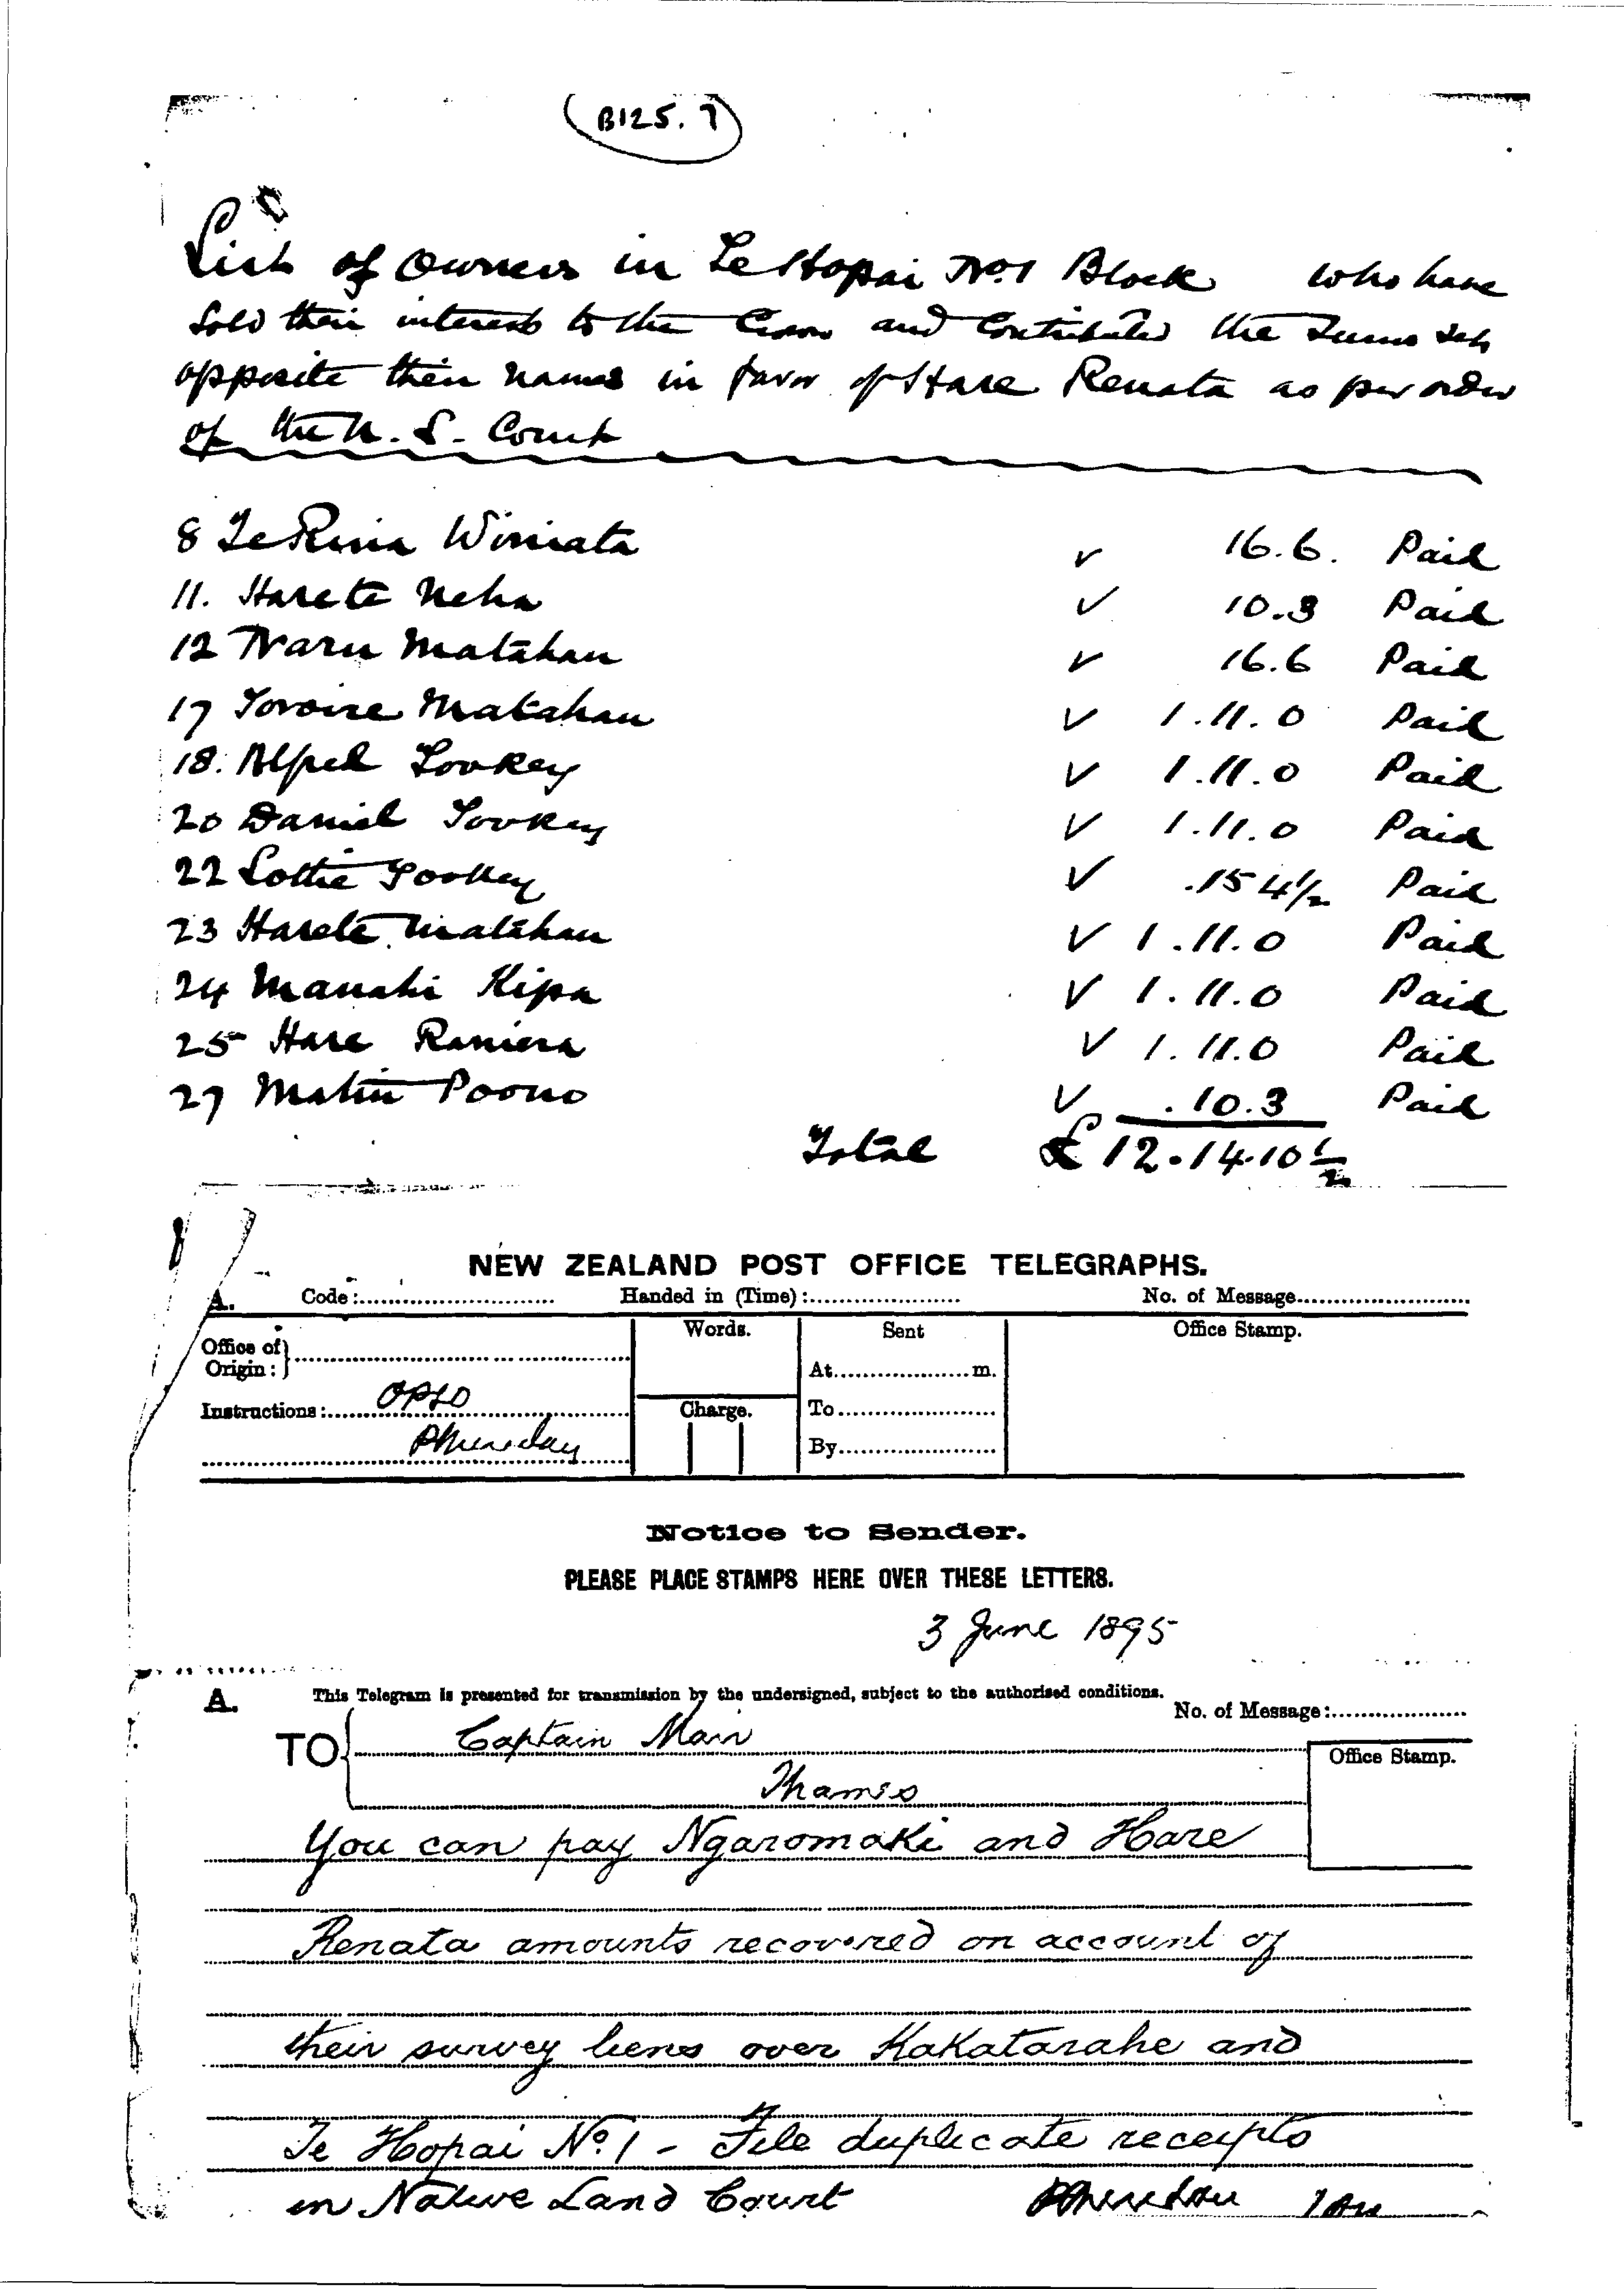 (B125.7)
List of Owners in Te Hopai No. 1 Block who have
sold their interest to the Crown and contributed the sums set
opposite their names in favor of Hare Renata as per order
of the N. L. Court
8 Te Winiata v 16.6. Paid
11. Harete Neha v 10.3 Paid
12 Watahau v 16.6 Paid
17 Matahau v 1.11.0 Paid
18. Alfred Tookey v 1.11.0 Paid
20 Daniel Tookey v 1.11.0 Paid
22 Lottie Tookey v .15 4 1/2 Paid
23 Harete Matahau v 1.11.0 Paid
24 Manahi Kipa v 1.11.0 Paid
25 Hare Raniera v 1.11.0 Paid
27 Poono v .10.3 Paid
Total £12.14.10 1/2
NEW ZEALAND POST OFFICE TELEGRAPHS.
A. Code: Handed in (Time): No. of Message
Office of Origin: Words. Sent Office Stamp.
At m.
Instructions: OPSO Charge. To
By
Notice to Sender.
PLEASE PLACE STAMPS HERE OVER THESE LETTERS.
3 June 1895
A. This Telegram is presented for transmission by the undersigned, subject to the authorised conditions. No. of Message:
TO Captain Mair Office Stamp.
Thames
You can pay Ngaromaki and Hare
Renata amounts recovered on account of
their survey liens over Kakatarahe and
Te Hopai No. 1 - File duplicate receipts
in Native Land Court